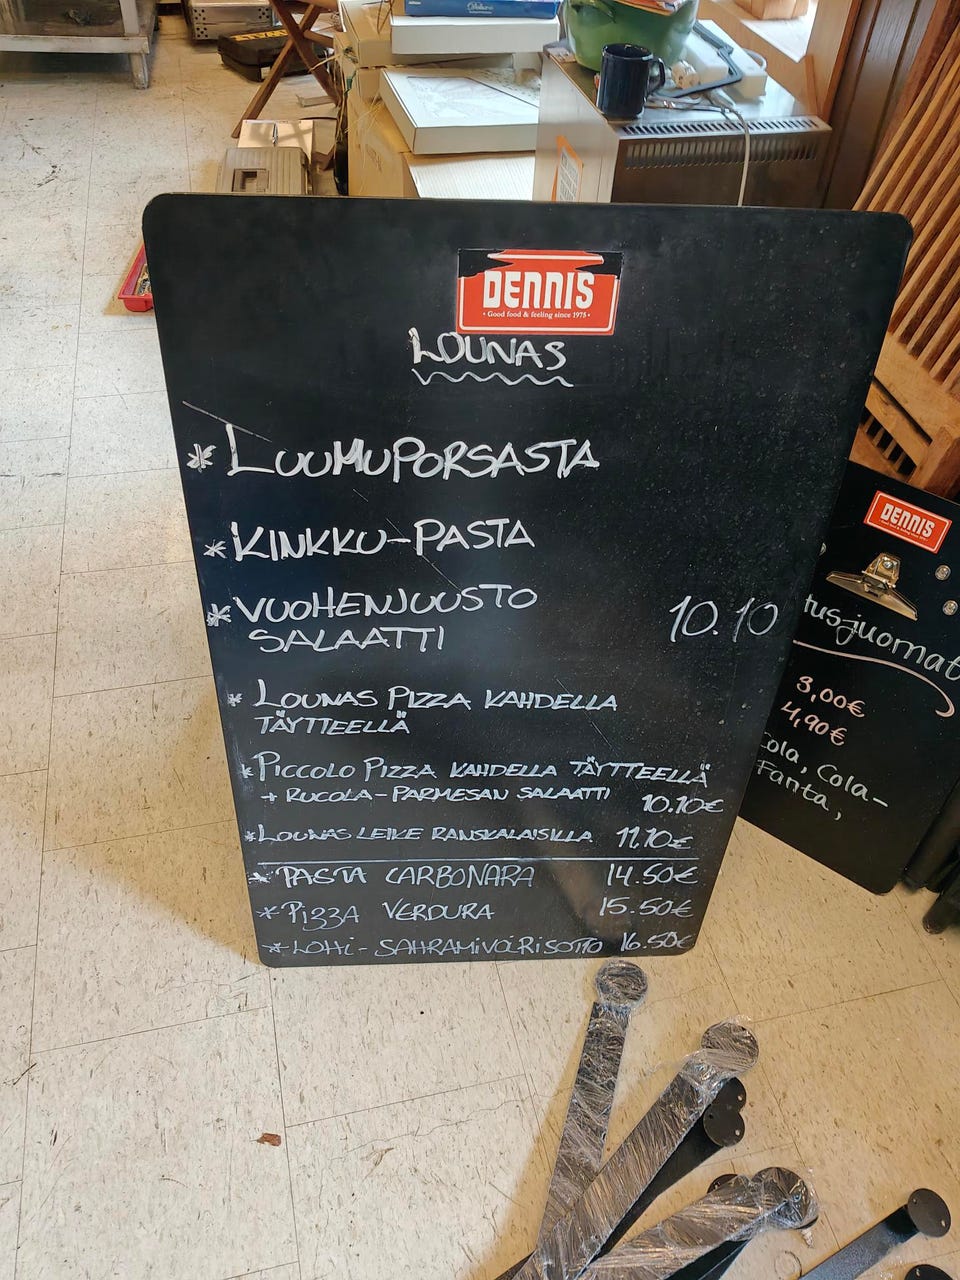 DENNIS
• Good food & feeling since 1975 •
LOUNAS
* LUUMUPORSASTA
* KINKKU-PASTA
* VUOHENJUUSTO
SALAATTI
10.10
* LOUNAS PIZZA KAHDELLA
TÄYTTEELLÄ
* PICCOLO PIZZA KAHDELLA TÄYTTEELLÄ
+ RUCOLA-PARMESAN SALAATTI 10.10€
* LOUNAS LEIKE RANSKALAISILLA 11.10€
* PASTA CARBONARA 14.50€
* PIZZA VERDURA 15.50€
* LOHI-SAHRAMIVOIRISOTTO 16.50€
DENNIS
tusjuomat
3,00€
4,90€
Cola, Cola-
Fanta,